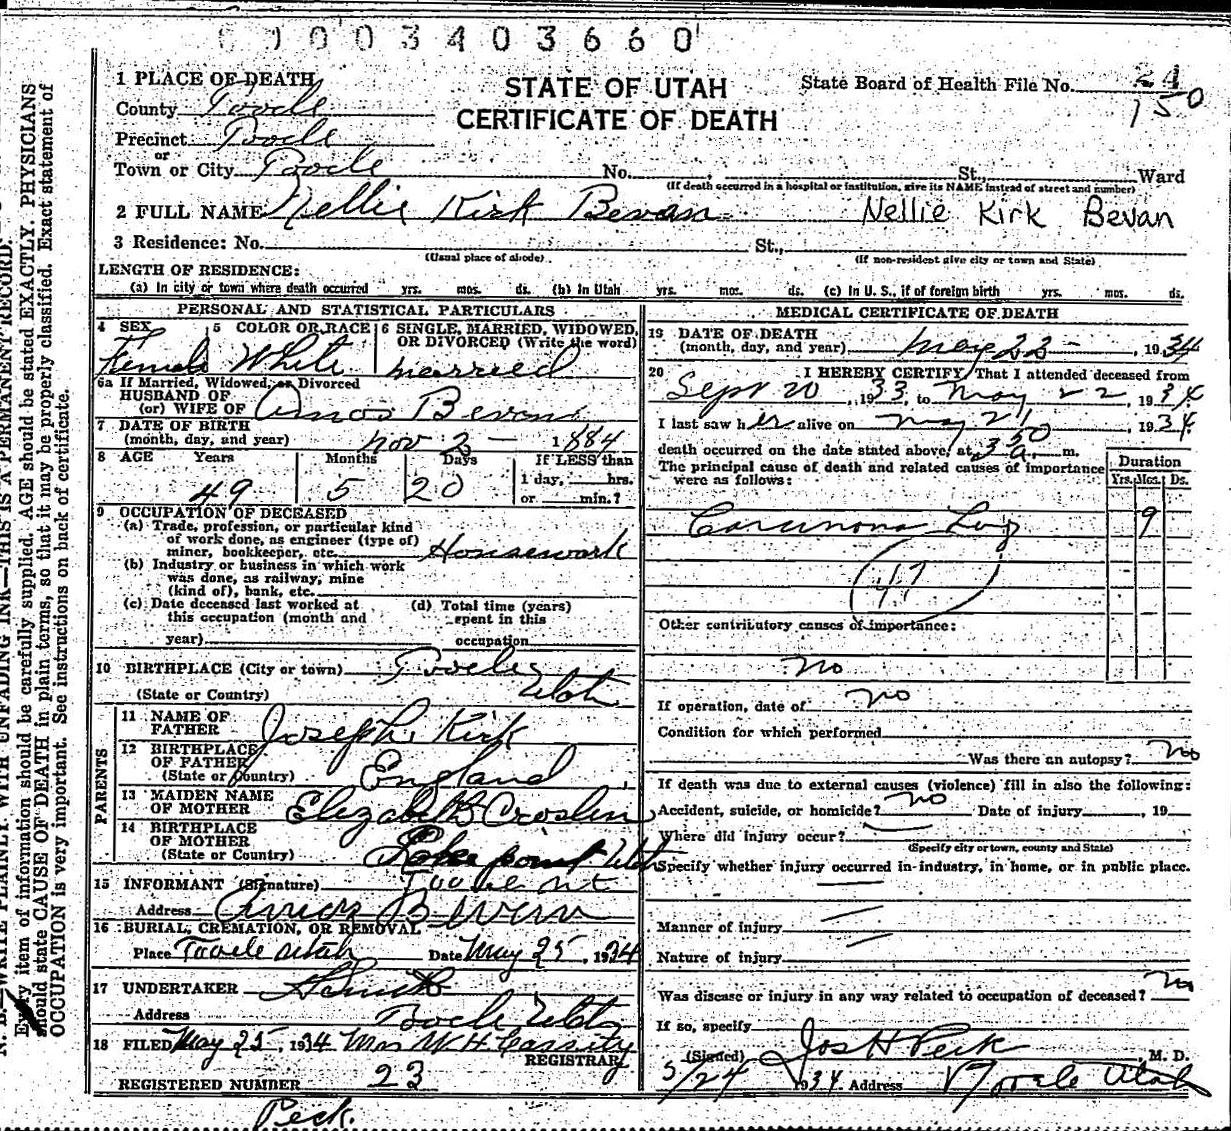 0 0 0 0 3 4 0 3 6 6 0
1 PLACE OF DEATH
County Tooele
Precinct Tooele
or
Town or City Tooele No. St., Ward
STATE OF UTAH
CERTIFICATE OF DEATH
State Board of Health File No. 24
150
(If death occurred in a hospital or institution, give its NAME instead of street and number)
2 FULL NAME Nellie Kirk Bevan Nellie Kirk Bevan
3 Residence: No. St.,
(Usual place of abode) (If non-resident give city or town and State)
LENGTH OF RESIDENCE:
(a) In city or town where death occurred yrs. mos. ds. (b) In Utah yrs. mos. ds. (c) In U. S., if of foreign birth yrs. mos. ds.
PERSONAL AND STATISTICAL PARTICULARS
4 SEX Female
5 COLOR OR RACE White
6 SINGLE, MARRIED, WIDOWED, OR DIVORCED (Write the word)
married
6a If Married, Widowed, or Divorced
HUSBAND OF
(or) WIFE OF Amos Bevan
7 DATE OF BIRTH
(month, day, and year) Nov 2 - 1884
8 AGE Years Months Days If LESS than
1 day, hrs.
49 5 20 or min.?
9 OCCUPATION OF DECEASED
(a) Trade, profession, or particular kind
of work done, as engineer (type of)
miner, bookkeeper, etc. Housework
(b) Industry or business in which work
was done, as railway, mine
(kind of), bank, etc.
(c) Date deceased last worked at
this occupation (month and
year)
(d) Total time (years)
spent in this
occupation
10 BIRTHPLACE (City or town) Tooele
(State or Country) Utah
PARENTS
11 NAME OF
FATHER Joseph Kirk
12 BIRTHPLACE
OF FATHER
(State or Country) England
13 MAIDEN NAME
OF MOTHER Elizabeth Croslen
14 BIRTHPLACE
OF MOTHER
(State or Country) Lake point Utah
15 INFORMANT (Signature) Tooele Ut
Address Amos Bevan
16 BURIAL, CREMATION, OR REMOVAL
Place Tooele Utah Date May 25, 1934
17 UNDERTAKER
Address Tooele Utah
18 FILED May 25, 1934 Mrs W H Cassity
REGISTRAR
REGISTERED NUMBER 23
Peck.
MEDICAL CERTIFICATE OF DEATH
19 DATE OF DEATH
(month, day, and year) May 22 - , 1934
20 I HEREBY CERTIFY, That I attended deceased from
Sept 20, 1933, to May 22, 1934
I last saw her alive on May 21, 1934
death occurred on the date stated above, at 3 50 a. m.
The principal cause of death and related causes of importance
were as follows:
Duration
Yrs. Mos. Ds.
Carcinoma Lung 9
47
Other contributory causes of importance:
no
If operation, date of no
Condition for which performed
Was there an autopsy? no
If death was due to external causes (violence) fill in also the following:
Accident, suicide, or homicide? no Date of injury 19
Where did injury occur?
(Specify city or town, county and State)
Specify whether injury occurred in industry, in home, or in public place.
Manner of injury
Nature of injury
Was disease or injury in any way related to occupation of deceased? no
If so, specify
(Signed) Jos H Peck, M. D.
5/24 1934 Address Tooele Utah
N. B.—WRITE PLAINLY, WITH UNFADING INK—THIS IS A PERMANENT RECORD.
Every item of information should be carefully supplied. AGE should be stated EXACTLY. PHYSICIANS
should state CAUSE OF DEATH in plain terms, so that it may be properly classified. Exact statement of
OCCUPATION is very important. See instructions on back of certificate.